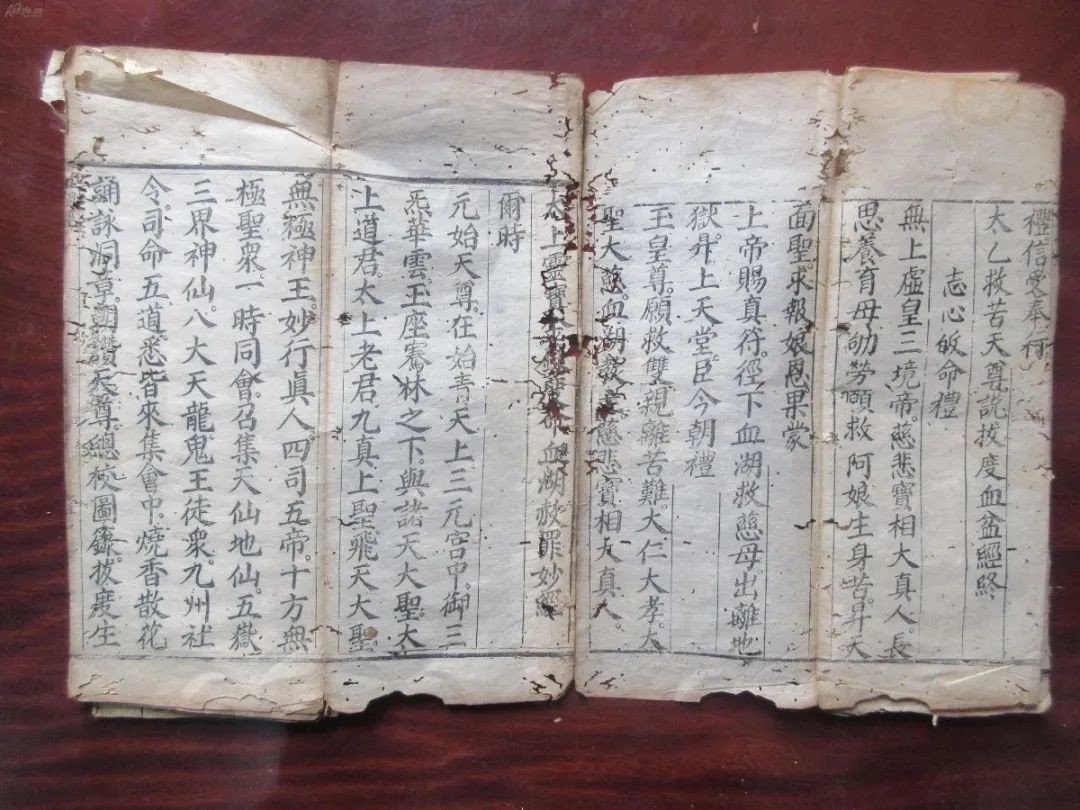 禮信受奉行
太乙救苦天尊說拔度血盆經終
志心皈命禮
無上虛皇三境帝。慈悲寶相大真人。長
思養育母劬勞。願救阿娘生身苦。昇天
面聖求報娘恩。果蒙
上帝賜真符。徑下血湖救慈母。出離地
獄。升上天堂。臣今朝禮
玉皇尊。願救雙親離苦難。大仁大孝。大
聖大慈。血湖教主。慈悲寶相大真人。
太上靈寶
血湖赦罪妙經
爾時
元始天尊。在始青天上三元宮中。御三
炁華雲。玉座騫林之下。與諸天大聖。太
上道君。太上老君。九真上聖。飛天大聖
無極神王。妙行真人。四司五帝。十方無
極聖眾。一時同會。召集天仙地仙。五嶽
三界神仙。八大天龍。鬼王徒眾。九州社
令。司命五道。悉皆來集會中。燒香散花
誦詠洞章。
讚天尊。總校圖籙。拔度生